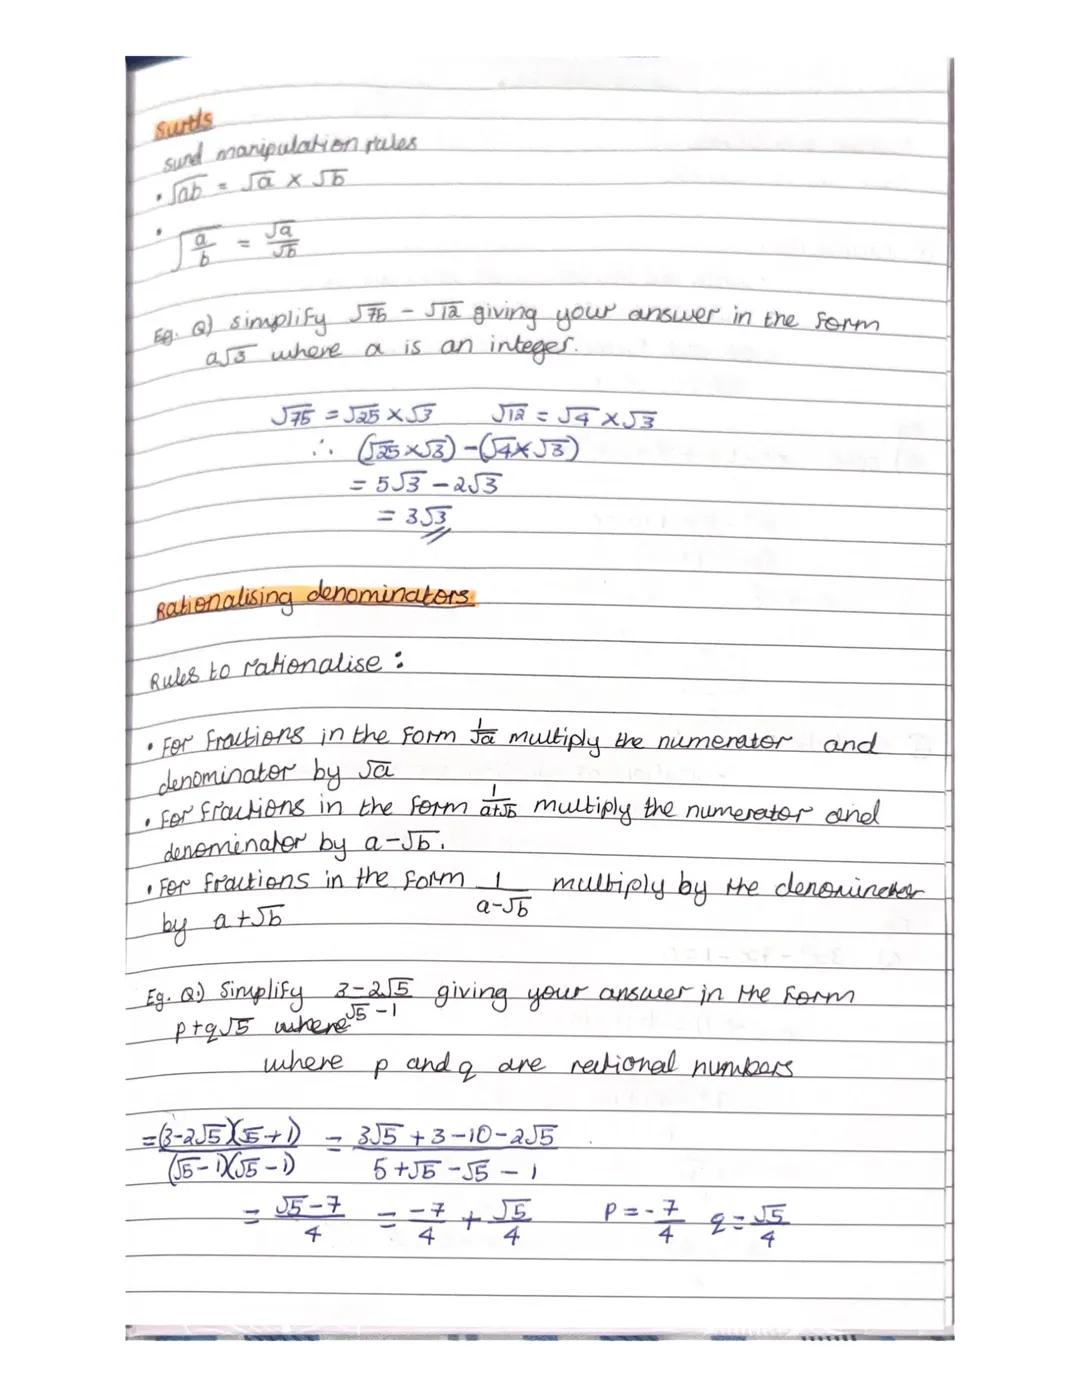 Surds
surd manipulation rules
• √ab = √a × √b
• √(a/b) = √a/√b
Eg. Q) simplify √75 - √12 giving your answer in the form
a√3 where a is an integer.
√75 = √25 × √3   √12 = √4 × √3
∴ (√25 × √3) - (√4 × √3)
= 5√3 - 2√3
= 3√3
Rationalising denominators.
Rules to rationalise :
• For fractions in the form 1/√a multiply the numerator and
denominator by √a
• For fractions in the form 1/(a+√b) multiply the numerator and
denominator by a-√b.
• For fractions in the form 1/(a-√b) multiply by the denominator
by a+√b
Eg. Q.) Simplify (3-2√5)/(√5-1) giving your answer in the form
p+q√5 where
where p and q are rational numbers
= (3-2√5)(√5+1)/(√5-1)(√5-1) = (3√5+3-10-2√5)/(5+√5-√5-1)
= (√5-7)/4 = -7/4 + √5/4   P = -7/4   q = √5/4